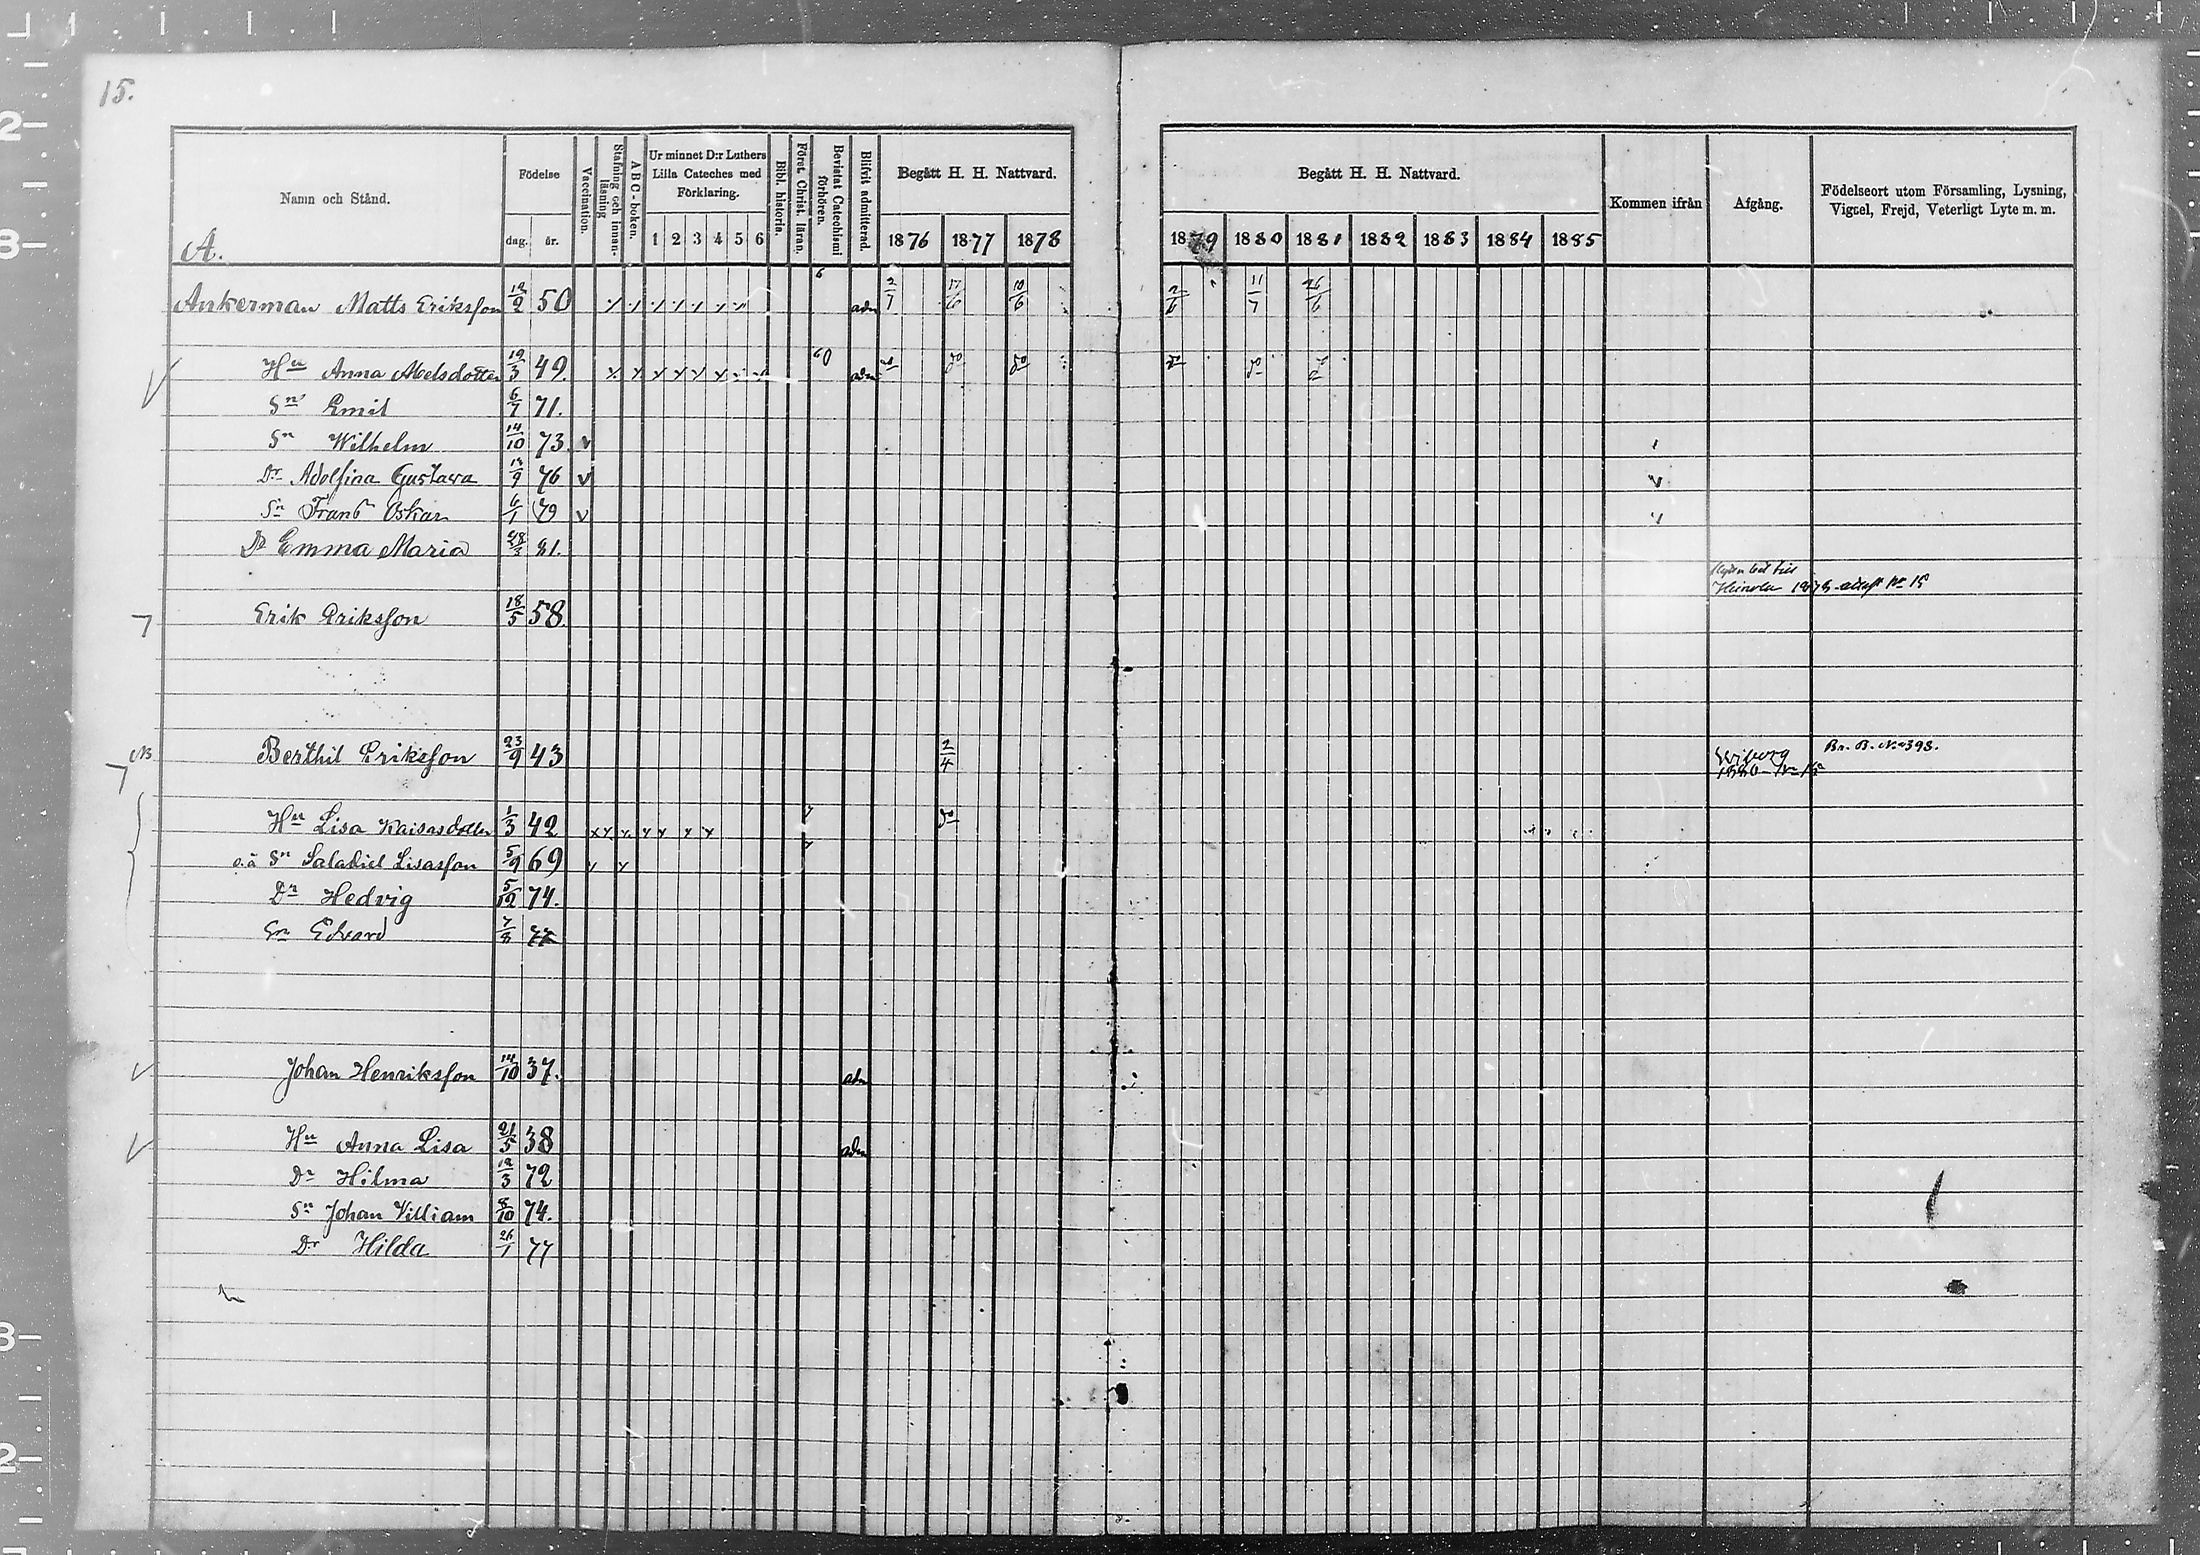 15.
Namn och Stånd.
Födelse
dag. år.
Vaccination.
Stafning och innanläsning
ABC-boken.
Ur minnet D:r Luthers Lilla Cateches med Förklaring.
1 2 3 4 5 6
Bibl. historia.
Föret. Christ. läran.
Bevistat Catechismi förhören.
Blifvit admitterad.
Begått H. H. Nattvard.
1876 1877 1878
Begått H. H. Nattvard.
1879 1880 1881 1882 1883 1884 1885
Kommen ifrån
Afgång.
Födelseort utom Församling, Lysning, Vigsel, Frejd, Veterligt Lyte m. m.
A.
Ankerman Matts Eriksson 12/2 50 adm 2/7 17/6 10/6 2/6 11/7 26/6
Hu Anna Abelsdotter 19/3 49. 60 adm do do do do do
Sn Emil 6/7 71.
Sn Wilhelm 14/10 73. v
Dr Adolfina Gustava 13/9 76 v
Sn Frans Oskar 6/1 79 v
Dr Emma Maria 28/3 81.
till
Heinola 1878 No 15
Erik Eriksson 18/5 58.
NB Berthil Eriksson 23/9 43 2/4 Wiborg Br. B. No 398.
1880 No 15
Hu Lisa Kaisasdotter 1/3 42 do
o.ä Sn Salatiel Lisasson 5/9 69
Dr Hedvig 5/12 74.
Sn Edvard 7/8 77
Johan Henriksson 14/10 37. adm
Hu Anna Lisa 21/5 38 adm
Dr Hilma 12/3 72
Sn Johan William 8/10 74.
Dr Hilda 26/1 77